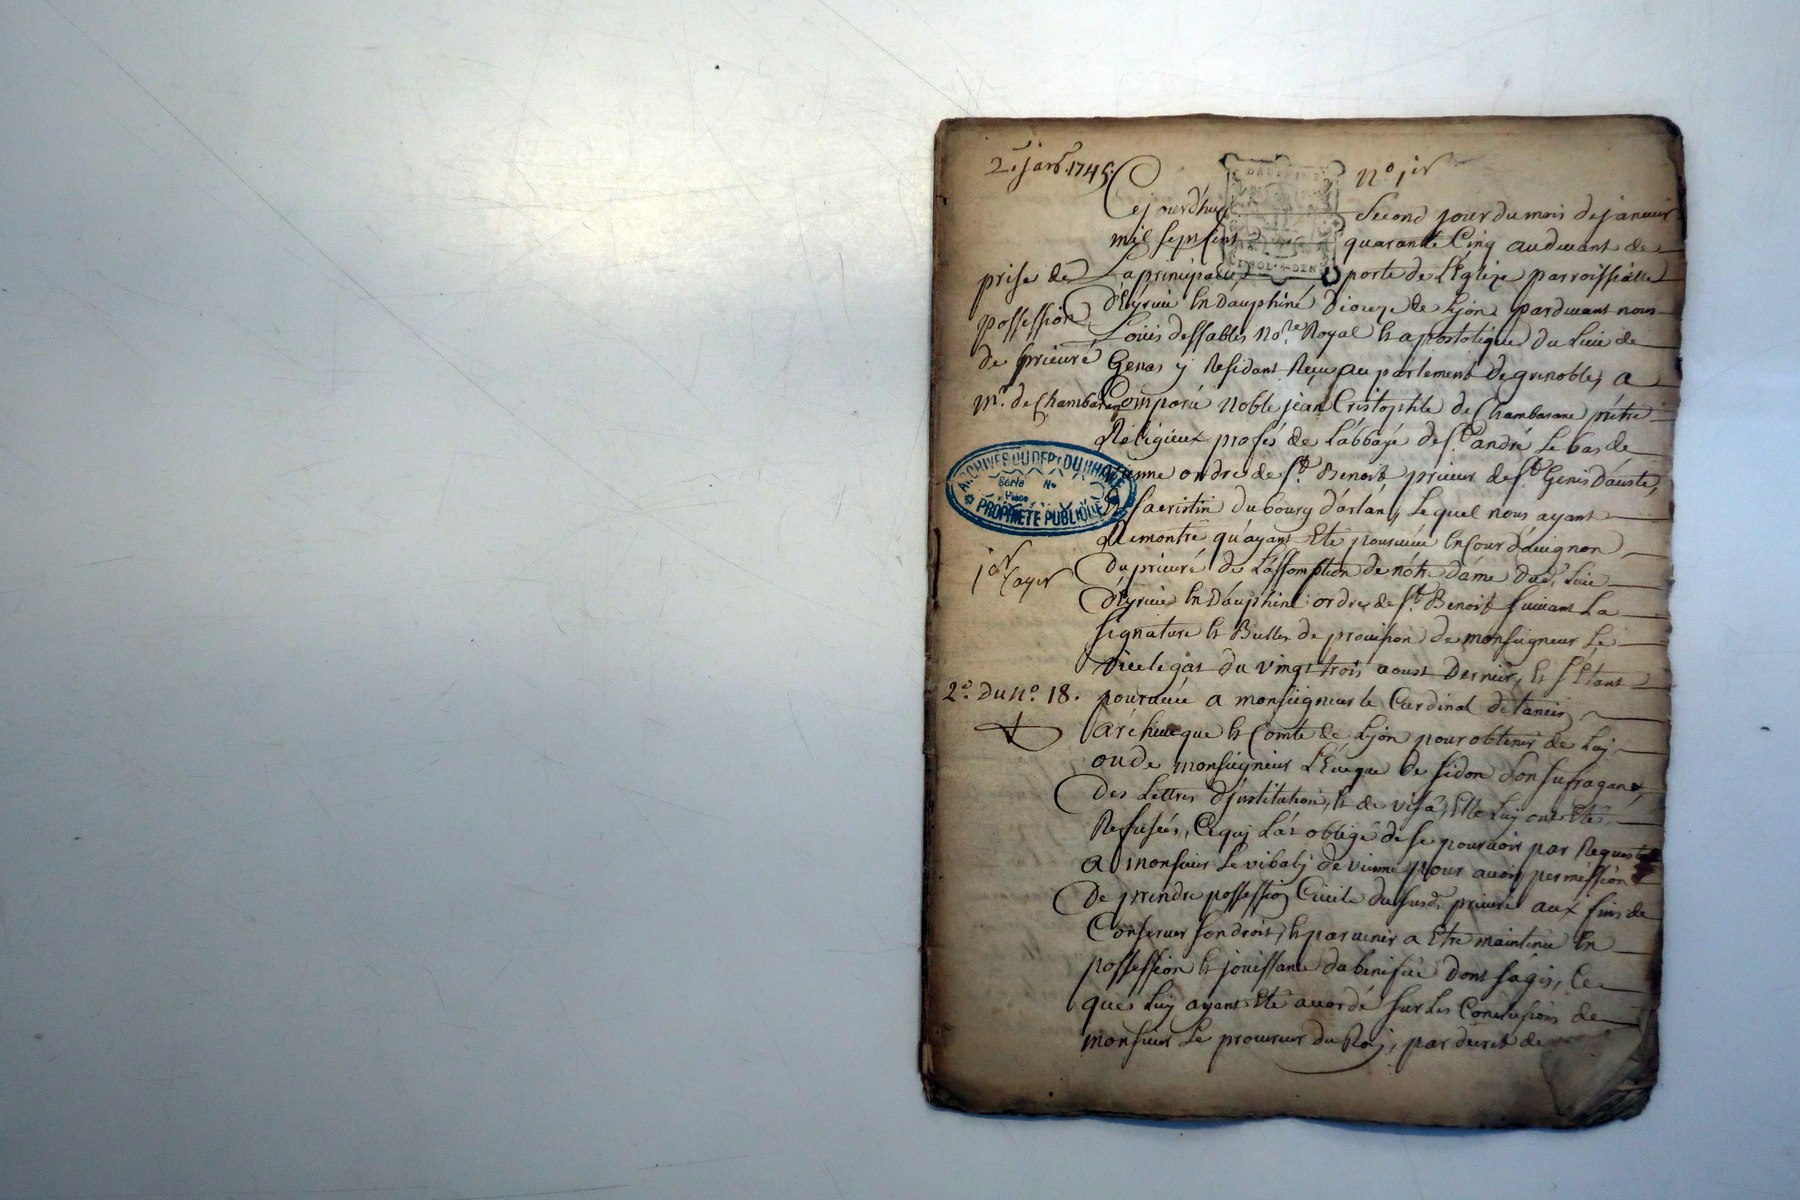 2e janr. 1745
no 1er
Cejourdhuy second jour du mois de janvier
mil sept cent quarante Cinq audevant de
La principale porte de L'Eglize parroissialle
d'Eyrieu En Dauphiné Dioceze de Lyon, pardevant nous
Louis dessables nore Royal Et apostolique du Lieu de
Genas y Residant Reçu au parlement de grenoble, a
Comparu noble jean Cristophle de Chambaran prêtre
Religieux profés de L'abbaye de st andré Le bas de
Vienne ordre de st Benoit prieur de st Genis Dauste,
Et sacristin du bourg d'arlan, Lequel nous ayant
Remontré qu'ayant Eté pourvuu En Cour d'avignon
Du prieuré de L'assomption de nôtre dáme dud. Lieu
d'Eyrieu En Dauphiné ordre de st Benoit suivant La
signature Et Bulles de provision de monseigneur Le
vicelegat du vingt trois aoust Dernier, Et s'Etant
pourvuu a monseigneur le Cardinal de tancin
archeveque Et Comte de Lyon pour obtenir de Luy
ou de monseigneur L'Eveque de sidon son sufragant,
Des Lettres d'institution, Et de visa, Elle Luy ont Eté
Refusées, Ce qui L'at obligé de se pourvoir par Requeste
a monsieur Le vibaly de vienne pour avoir permission
De prendre possession Civile du susd. prieuré aux fins de
Conserver son droit, Et parvenir a Etre maintenu En
possession Et jouissance du benefice dont s'agis, Ce
que Luy ayant Eté accordé sur Les Conclusions de
monsieur Le procureur du Roy, par decret de
prise de
possession
de prieuré
mr. de Chambaran
ARCHIVES DU DEPt DU RHONE
Serie No
Piece
PROPRIETE PUBLIQUE
1er Cayer
2e. Du no. 18.